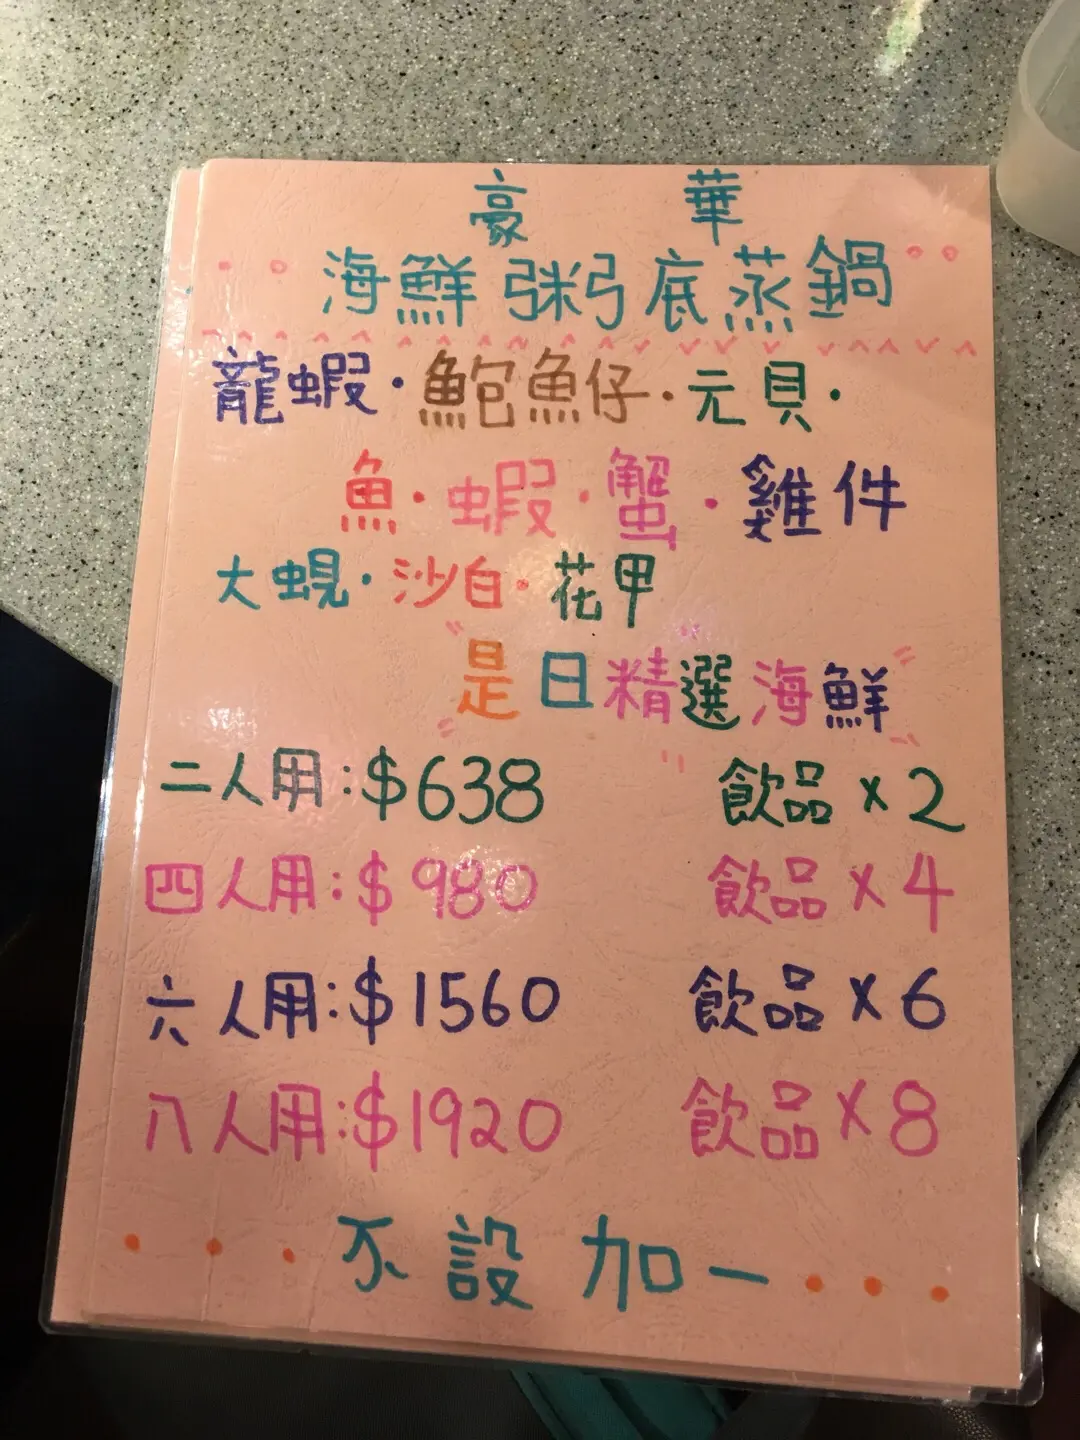 豪華
海鮮粥底蒸鍋
龍蝦·鮑魚仔·元貝·
魚·蝦·蟹·雞件
大蜆·沙白·花甲
是日精選海鮮
二人用:$638 飲品x2
四人用:$980 飲品x4
六人用:$1560 飲品x6
八人用:$1920 飲品x8
···不設加一···